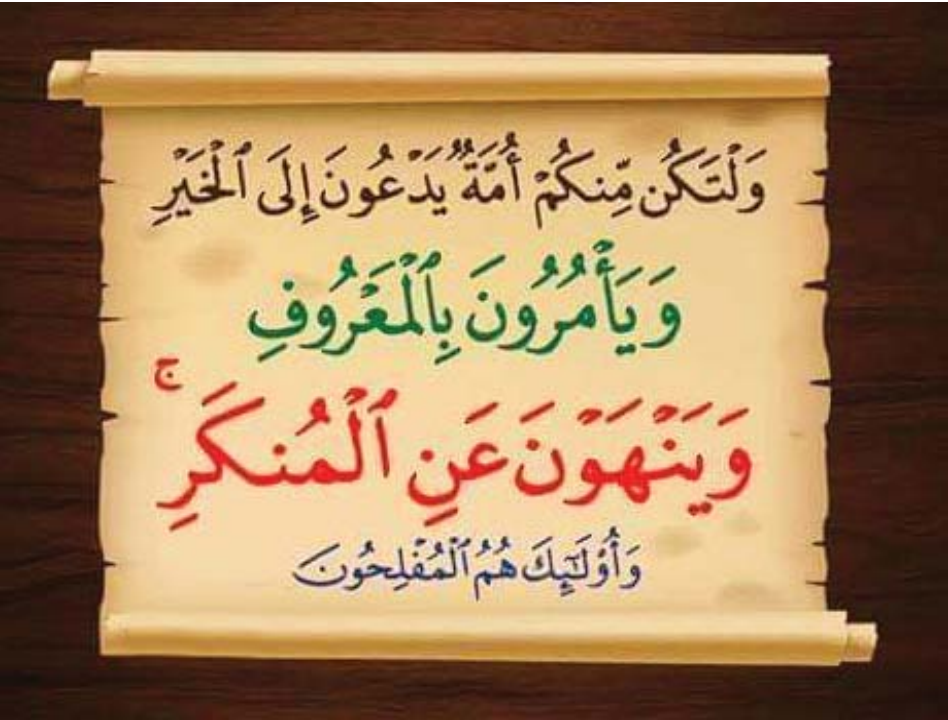 وَلْتَكُن مِّنكُمْ أُمَّةٌ يَدْعُونَ إِلَى ٱلْخَيْرِ
وَيَأْمُرُونَ بِٱلْمَعْرُوفِ
وَيَنْهَوْنَ عَنِ ٱلْمُنكَرِ ۚ
وَأُوْلَـٰٓئِكَ هُمُ ٱلْمُفْلِحُونَ